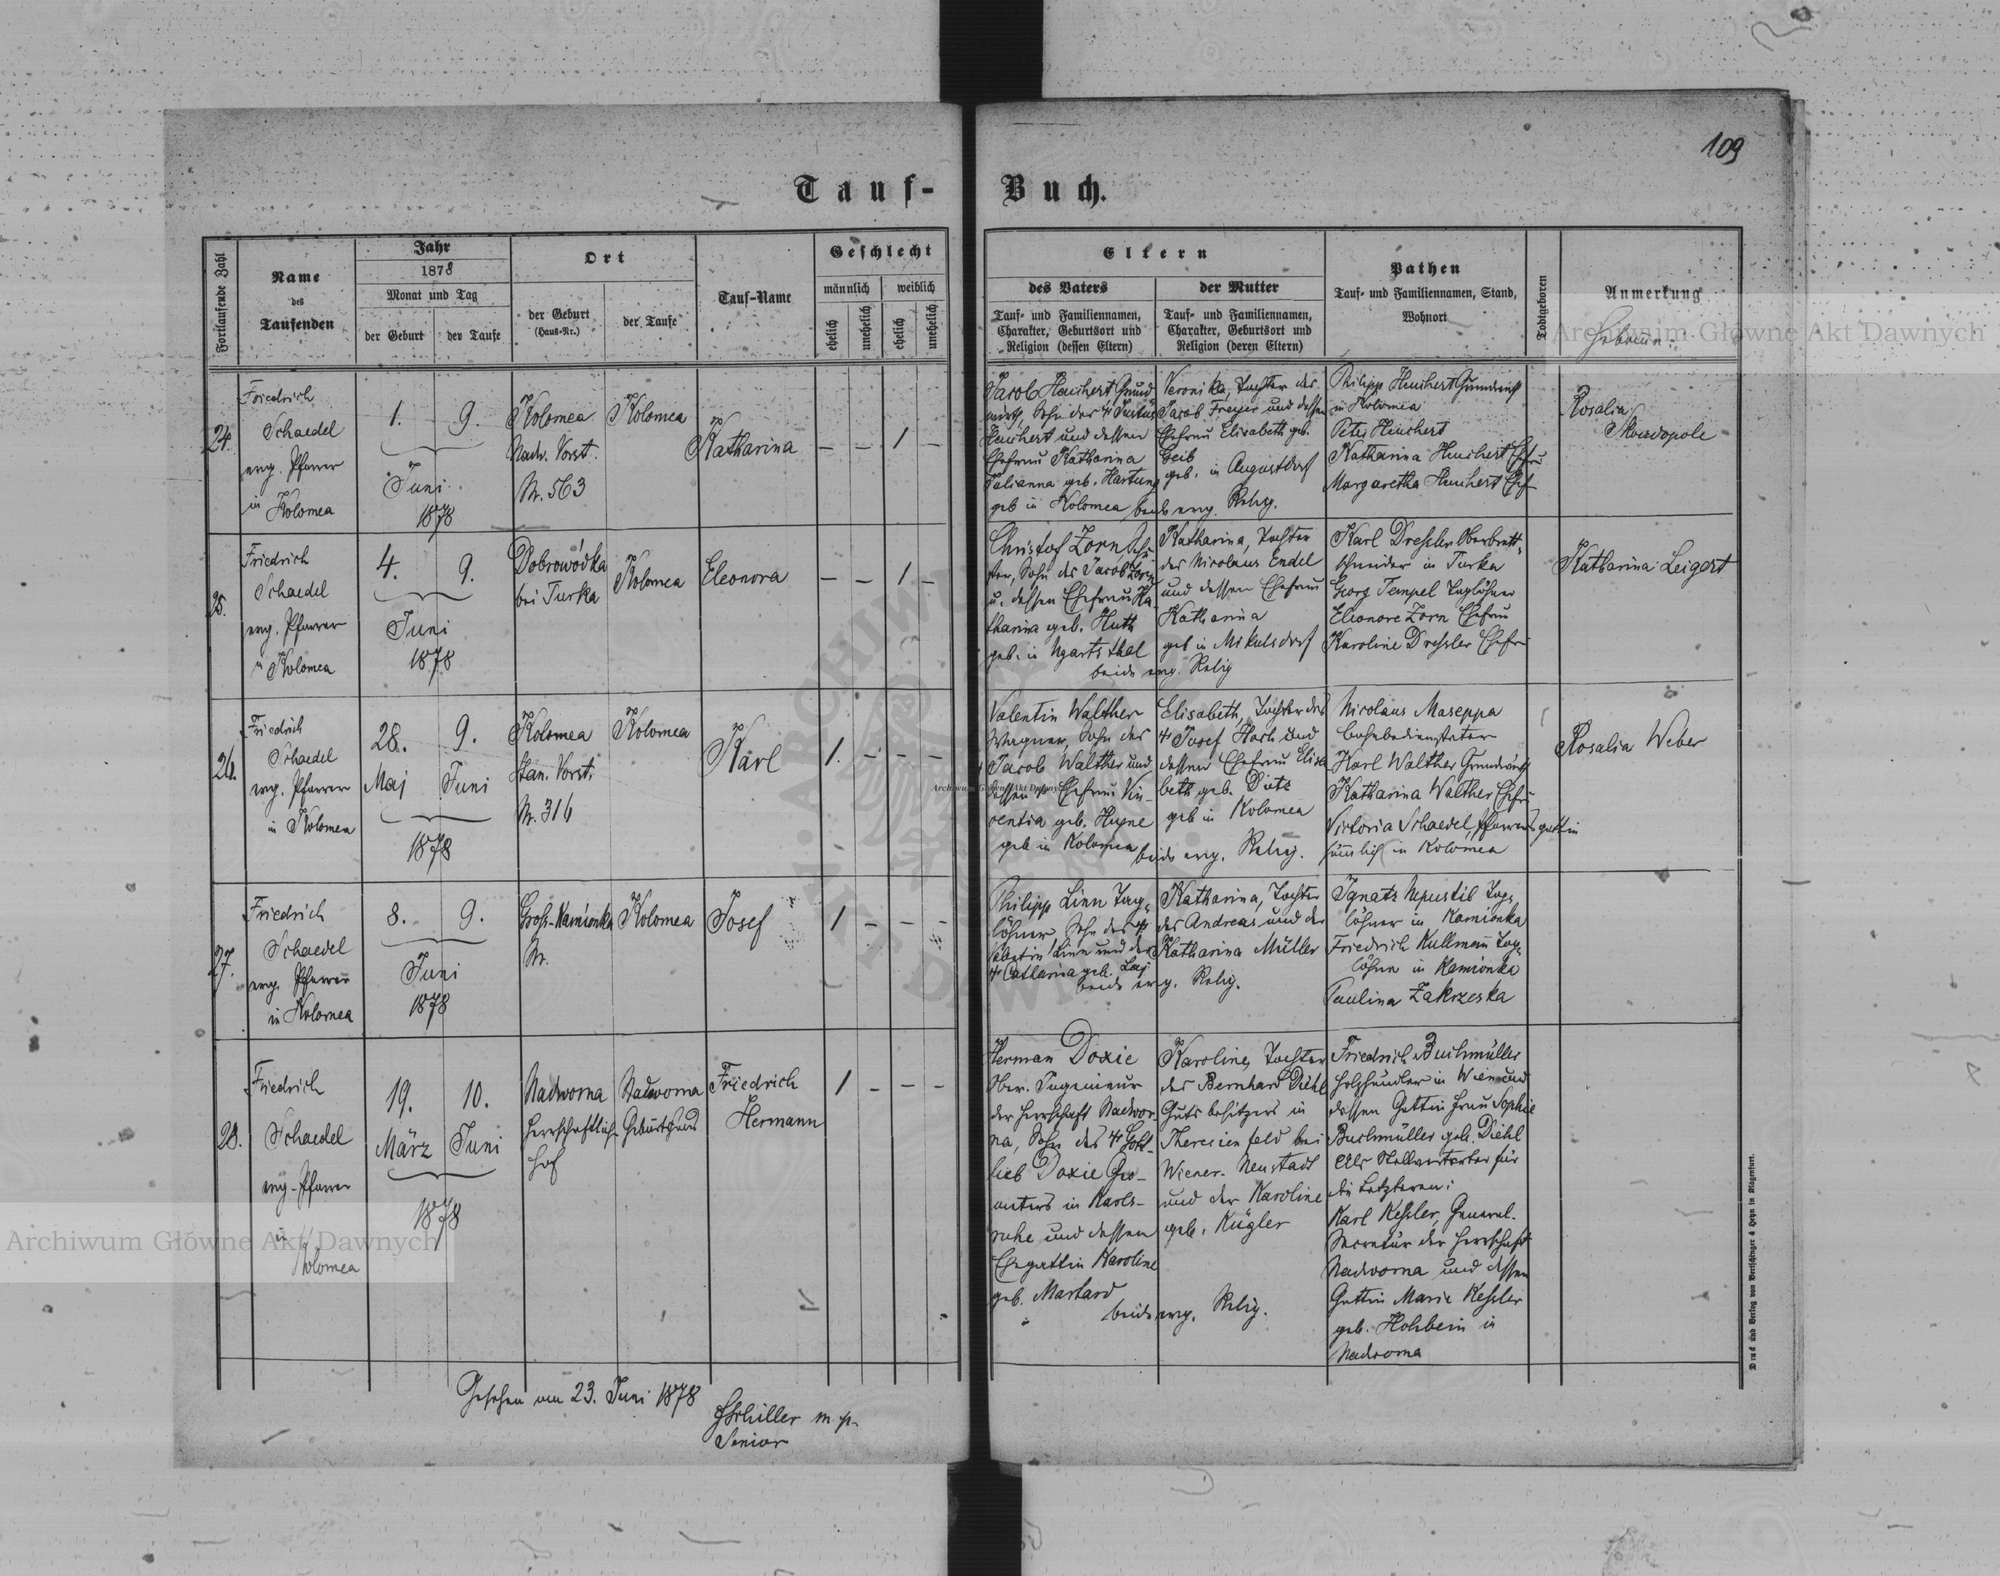 109
Tauf-Buch.
Fortlaufende Zahl
Name
des
Taufenden
Jahr
1878
Monat und Tag
der Geburt
der Taufe
Ort
der Geburt
(Haus-Nr.)
der Taufe
Tauf-Name
Geschlecht
männlich
weiblich
ehelich
unehelich
ehelich
unehelich
Eltern
des Vaters
Tauf- und Familiennamen,
Charakter, Geburtsort und
Religion (dessen Eltern)
der Mutter
Tauf- und Familiennamen,
Charakter, Geburtsort und
Religion (deren Eltern)
Pathen
Tauf- und Familiennamen, Stand,
Wohnort
Todtgeboren
Anmerkung
24.
Friedrich
Schaedel
evng. Pfarrer
in Kolomea
1.
9.
Juni
1878
Kolomea
Nadw. Vorst.
Nr. 563
Kolomea
Katharina
– – 1 –
Jacob Heuchert, Grund
wirth, Sohn des † Justus
Heuchert und dessen
Ehefrau Katharina
Julianna geb. Hartung
geb in Kolomea
Veronika, Tochter des
Jacob Freyer und dessen
Ehefrau Elisabeth geb.
Geib
geb. in Augustdorf
beide evng. Relig.
Philipp Heuchert Grundwirth
in Kolomea
Peter Heuchert
Katharina Heuchert Ehefr
Margaretha Heuchert Ehef
Rosalia
25.
Friedrich
Schaedel
evng. Pfarrer
in Kolomea
4.
9.
Juni
1878
Dobrowódka
bei Turka
Kolomea
Eleonora
– – 1 –
Christof Zorn,
Sohn des Jacob Zorn
u. dessen Ehefrau Ka
tharina geb. Huth
geb. in Ugartsthal
Katharina, Tochter
des Nicolaus Endel
und dessen Ehefrau
Katharina
geb in Mikulsdorf
beide evng. Relig
Karl Dressler Oberbrett-
schneider in Turka
Georg Tempel Taglöhner
Eleonore Zorn Ehefrau
Karoline Dressler Ehefr
Katharina Leigert
26.
Friedrich
Schaedel
evng. Pfarrer
in Kolomea
28.
Maj
9.
Juni
1878
Kolomea
Stan. Vorst.
Nr. 316
Kolomea
Karl
1. – – –
Valentin Walther
Wagner, Sohn des
Jacob Walther und
dessen † Ehefrau Vin-
centia geb. Heyne
geb in Kolomea
Elisabeth, Tochter des
† Josef Hoch und
dessen Ehefrau Elisa
beth geb. Dietz
geb in Kolomea
beide evng. Relig.
Nicolaus Maseppa
Karl Walther Grundwirth
Katharina Walther Ehefr
Victoria Schaedel, Pfarrersgattin
sämtlich in Kolomea
Rosalia Weber
27.
Friedrich
Schaedel
evng. Pfarrer
in Kolomea
8.
9.
Juni
1878
Gross-Kamionka
Nr.
Kolomea
Josef
1 – – –
Philipp Linn Tag-
löhner Sohn des †
Linn und der
† Catharina geb.
Katharina, Tochter
des Andreas und der
Katharina Müller
beide evng. Relig.
Ignatz Tag-
löhner in Kamionka
Friedrich Kullmann Tag-
löhner in Kamionka
Paulina Zakrzeska
28.
Friedrich
Schaedel
evng-Pfarrer
in
Kolomea
19.
März
10.
Juni
1878
Nadworna
herrschaftlich
hof
Nadworna
Geburtshaus
Friedrich
Hermann
1 – – –
Herman Doxie
Ober-Ingenieur
der Herrschaft Nadwor-
na, Sohn des † Gott-
lieb Doxie
in Karls-
ruhe und dessen
Ehegattin Karoline
geb.
Karoline, Tochter
des Bernhard Diehl
Gutsbesitzers in
Theresienfeld bei
Wiener-Neustadt
und der Karoline
geb. Kügler
beide evng. Relig.
Friedrich Buchmüller
Holzhändler in Wien und
dessen Gattin Frau Sophie
Buchmüller geb. Diehl
Als Stellvertreter für
die Letzteren:
Karl Kessler, General-
Secretär der Herrschaft
Nadworna und dessen
Gattin Marie Kessler
geb. Holzbein in
Nadworna
Gesehen am 23. Juni 1878
Senior
Druck und Verlag von Bertschinger & Heyn in Klagenfurt.
Archiwum Główne Akt Dawnych
Archiwum Główne Akt Dawnych
Archiwum Główne Akt Dawnych